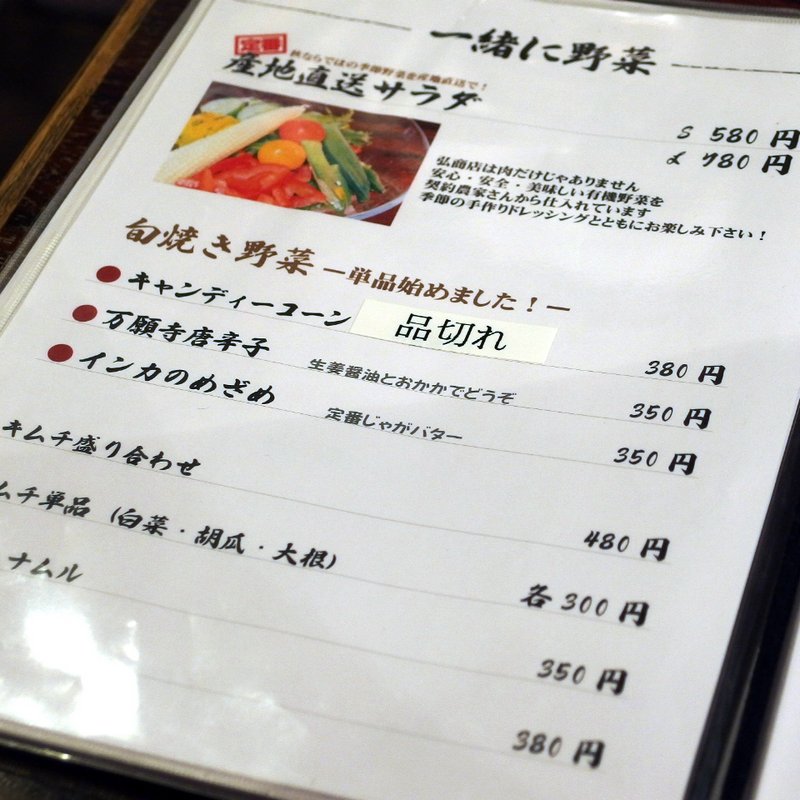 一緒に野菜
定番
秋ならではの季節野菜を産地直送で！
産地直送サラダ
S 580 円
L 780 円
弘商店は肉だけじゃありません
安心・安全・美味しい有機野菜を
契約農家さんから仕入れています
季節の手作りドレッシングとともにお楽しみ下さい！
旬焼き野菜 ー単品始めました！ー
キャンディーコーン 品切れ 380 円
万願寺唐辛子 生姜醤油とおかかでどうぞ 350 円
インカのめざめ 定番じゃがバター 350 円
キムチ盛り合わせ 480 円
ムチ単品 (白菜・胡瓜・大根) 各 300 円
ナムル 350 円
380 円